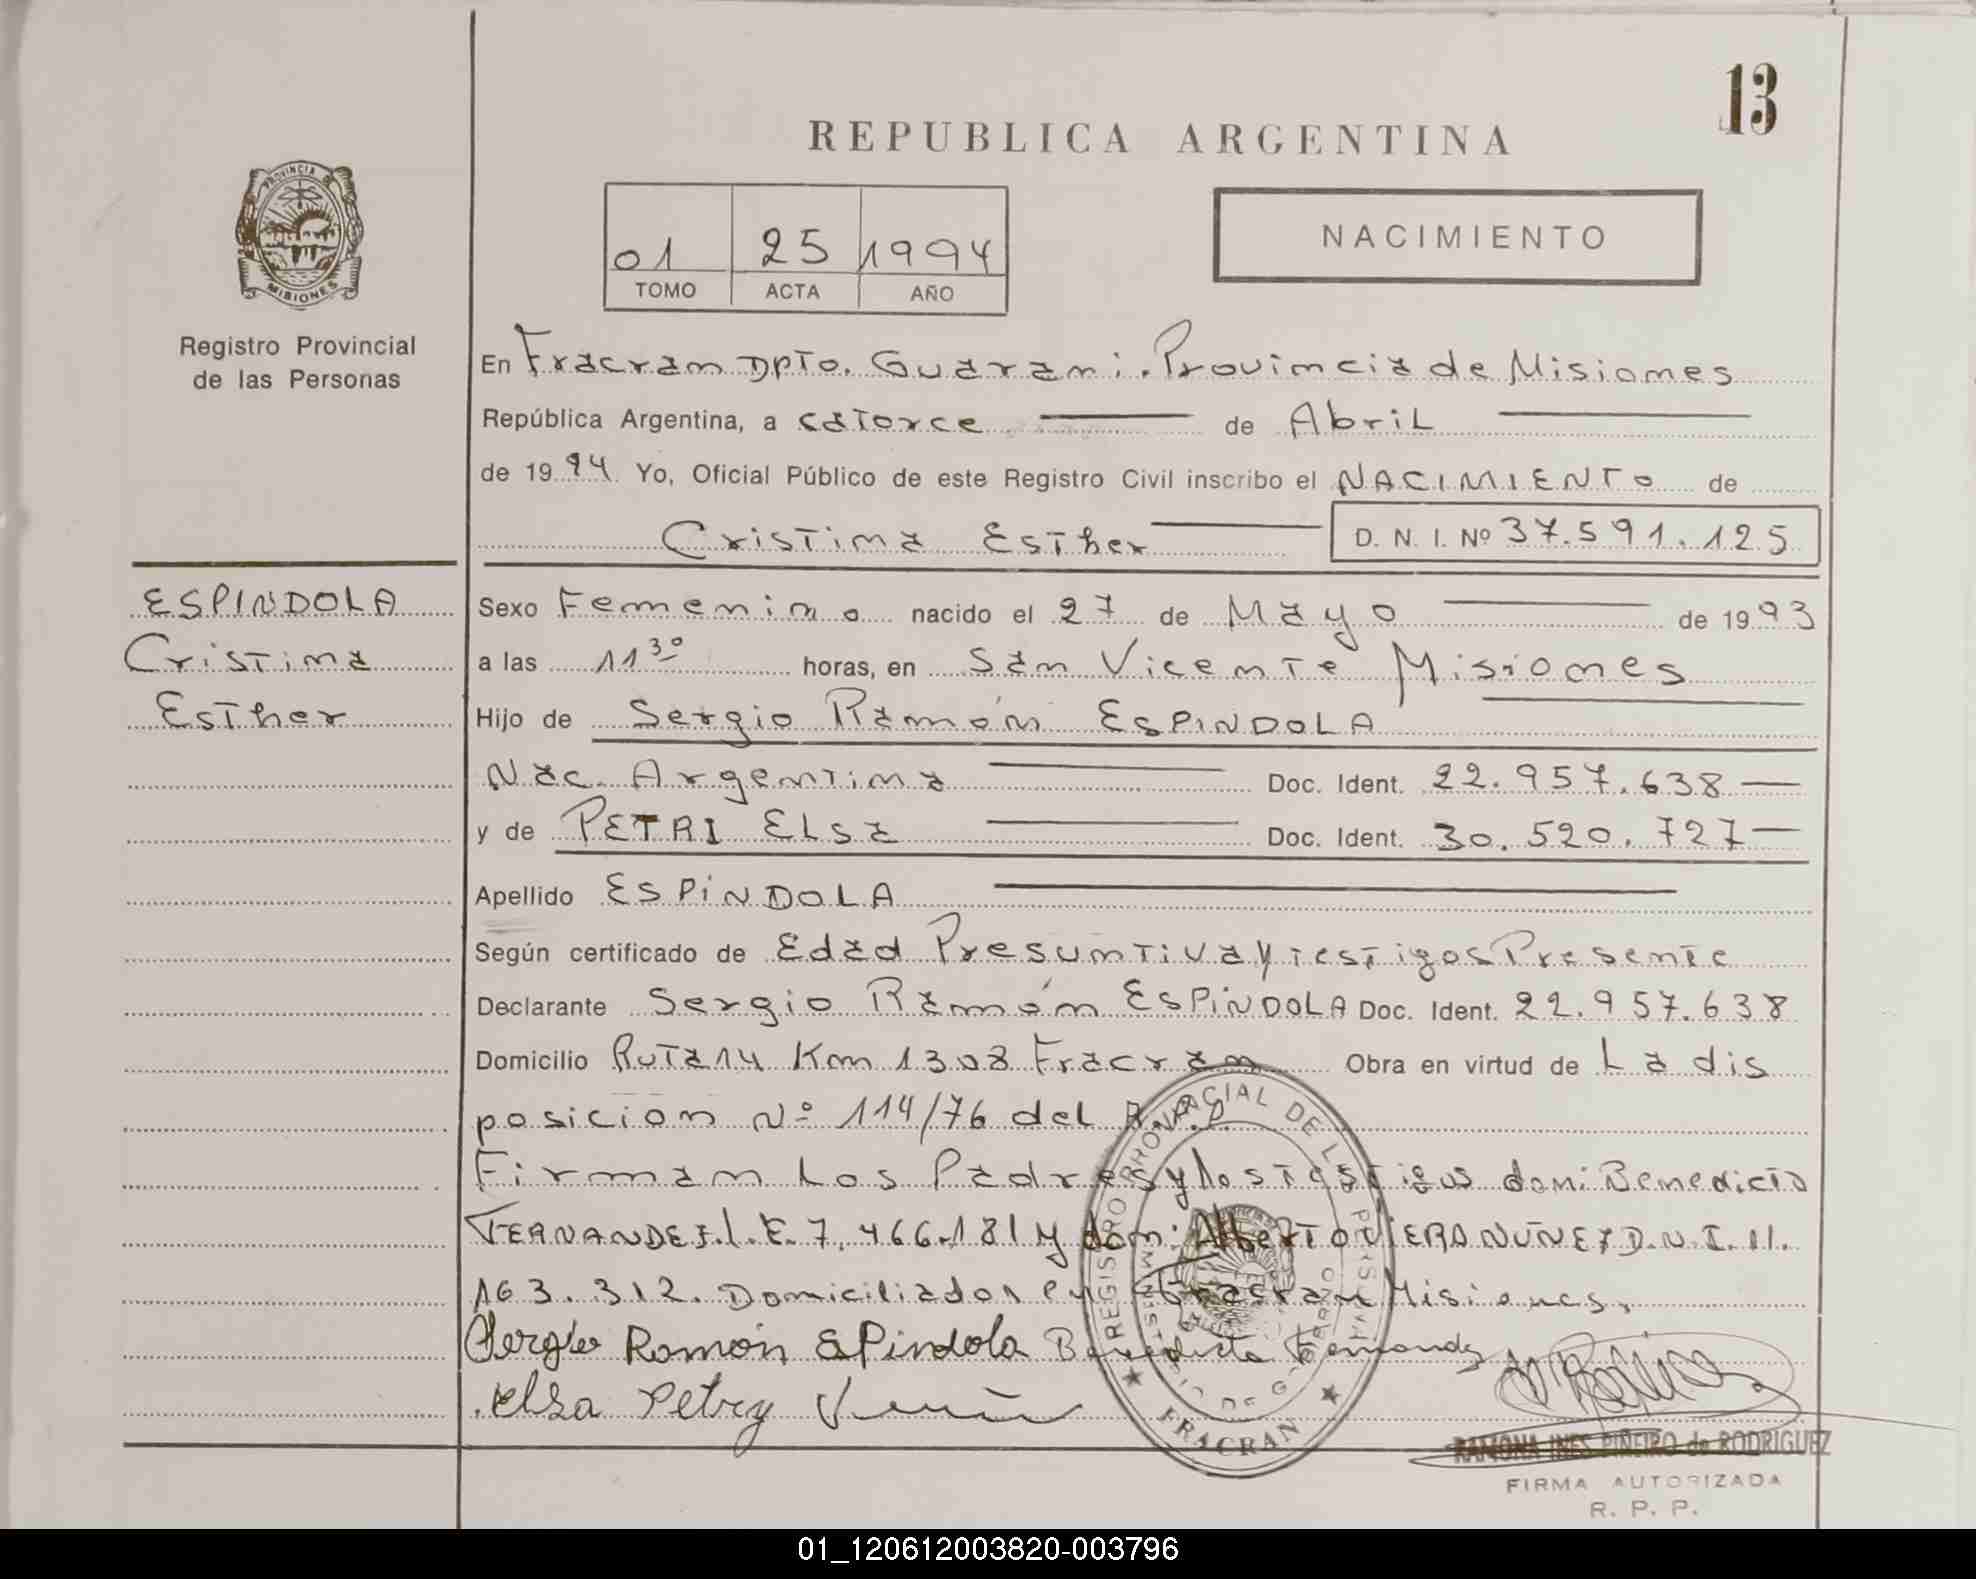 13
REPUBLICA ARGENTINA
PROVINCIA
MISIONES
Registro Provincial
de las Personas
01 25 1994
TOMO ACTA AÑO
NACIMIENTO
En Fracran DPTO. Guarani. Provincia de Misiones
República Argentina, a catorce de Abril
de 1994 Yo, Oficial Público de este Registro Civil inscribo el NACIMIENTO de
Cristina Esther D. N. I. Nº 37.591.125
ESPINDOLA
Cristina
Esther
Sexo Femenino nacido el 27 de Mayo de 1993
a las 11 30 horas, en San Vicente Misiones
Hijo de Sergio Ramón ESPINDOLA
Nac. Argentina Doc. Ident. 22.957.638
y de PETRI ELSa Doc. Ident. 30.520.727
Apellido ESPiNDOLA
Según certificado de Edad Presuntiva y testigos Presente
Declarante Sergio Ramón ESPiNDOLA Doc. Ident. 22.957.638
Domicilio Ruta 14 Km 1308 Fracran Obra en virtud de La dis
posicion Nº 114/76 del R.P.P.
Firman Los Padres y los testigos don: Benedicto
FERNANDEZ L.E. 7.466.181 y don: Alberto VIERA NUÑEZ D.N.I. 11.
163.312. Domiciliados en Fracran Misiones.
Sergio Ramón EPindola Benedicto Fernandez
elsa Petry
REGISTRO PROVINCIAL DE LAS PERSONAS
MINISTERIO DE GOBIERNO
FRACRAN
RAMONA INES PIÑEIRO de RODRIGUEZ
FIRMA AUTORIZADA
R. P. P.
01_120612003820-003796